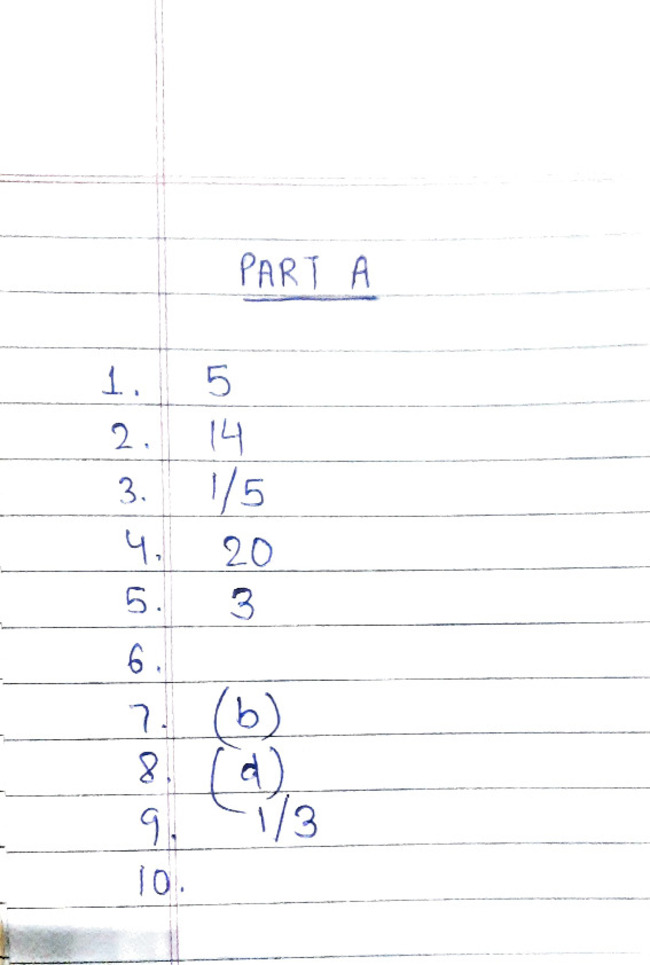 PART A
1. 5
2. 14
3. 1/5
4. 20
5. 3
6.
7. (b)
8. (d)
9. 1/3
10.